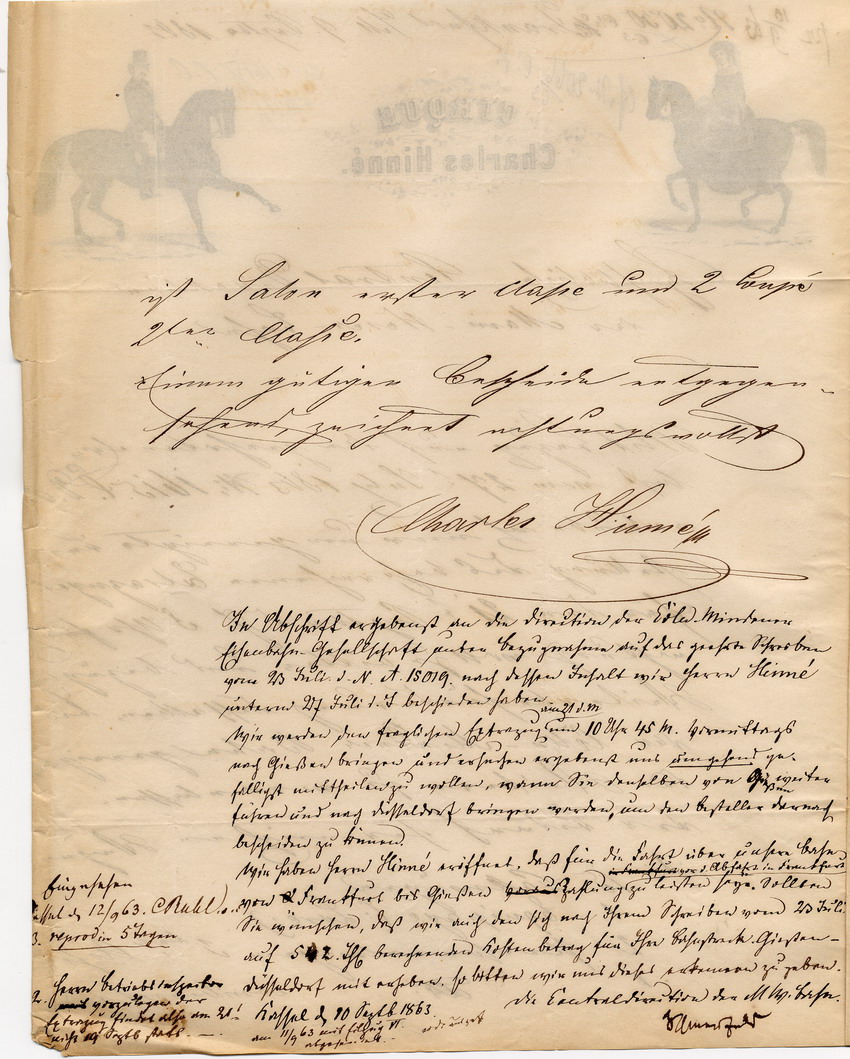 ist Salon erster Classe und 2 Coupé
2ter Classe.
Einem gütigen Bescheide entgegen-
sehend, zeichnet achtungsvollst
Charles Hinné
In Abschrift ergebenst an die Direction der Cöln-Mindener
Eisenbahn-Gesellschaft unter Bezugnahme auf das geehrte Schreiben
vom 23 Juli d. J. N. A. 15019. nach dessen Inhalt wir Herrn Hinné
unterm 27 Juli d. J beschieden haben.
Wir werden den fraglichen Extrazug am 21 d. M um 10 Uhr 45 M. Vormittags
nach Gießen bringen und ersuchen ergebenst uns umgehend ge-
fälligst mittheilen zu wollen, wann Sie denselben von Gießen weiter
führen und nach Düsseldorf bringen werden, um den Besteller darnach
bescheiden zu können.
Wir haben Herrn Hinné eröffnet, daß für die Fahrt über unsere Bahn
von Frankfurt bis Gießen vor d. Abfahrt in Frankfurt Zahlung zu leisten sey. Sollten
Sie wünschen, daß wir auch den sich nach Ihrem Schreiben vom 23 Juli
auf 542 Thl berechnenden Kostenbetrag für Ihre Bahnstrecke Gießen-
Düsseldorf mit erheben, so bitten wir uns dieses erkennen zu geben.
Cassel den 10 Septb 1863
Die Centraldirection der M. W. Bahn.
am 11/9 63 mit Eilzug VI
abgesendet.
Eingesehen
Cassel d 12/9 63. C Ruhl
3. reprod in 5 Tagen
2. Herrn Betriebsinspector
vorzulegen der
Extrazug findet also am 21!
nicht 19 Septb statt.
CIRQUE
Charles Hinné.